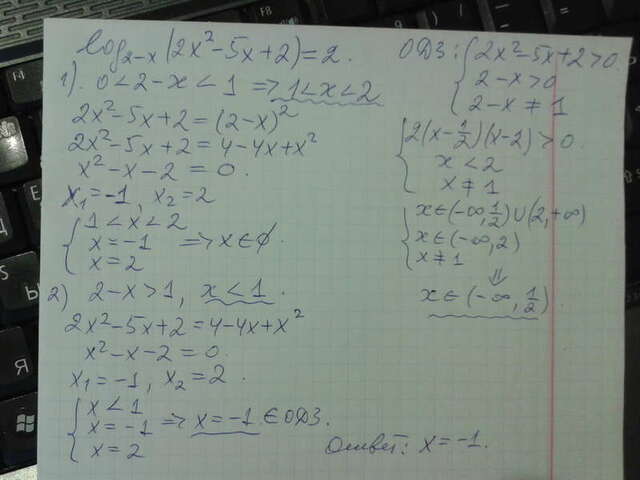 log₂₋ₓ(2x²-5x+2)=2.
1). 0<2-x<1 => 1<x<2
2x²-5x+2=(2-x)²
2x²-5x+2=4-4x+x²
x²-x-2=0.
x₁=-1, x₂=2
{1<x<2
x=-1 => x∈∅.
x=2
2) 2-x>1, x<1.
2x²-5x+2=4-4x+x²
x²-x-2=0.
x₁=-1, x₂=2.
{x<1
x=-1 => x=-1 ∈ОДЗ.
x=2
ОДЗ: {2x²-5x+2>0.
2-x>0
2-x≠1
{2(x-1/2)(x-2)>0.
x<2
x≠1
{x∈(-∞,1/2)∪(2,+∞)
x∈(-∞,2)
x≠1
⇓
x∈(-∞,1/2).
Ответ: x=-1.
F8
Я